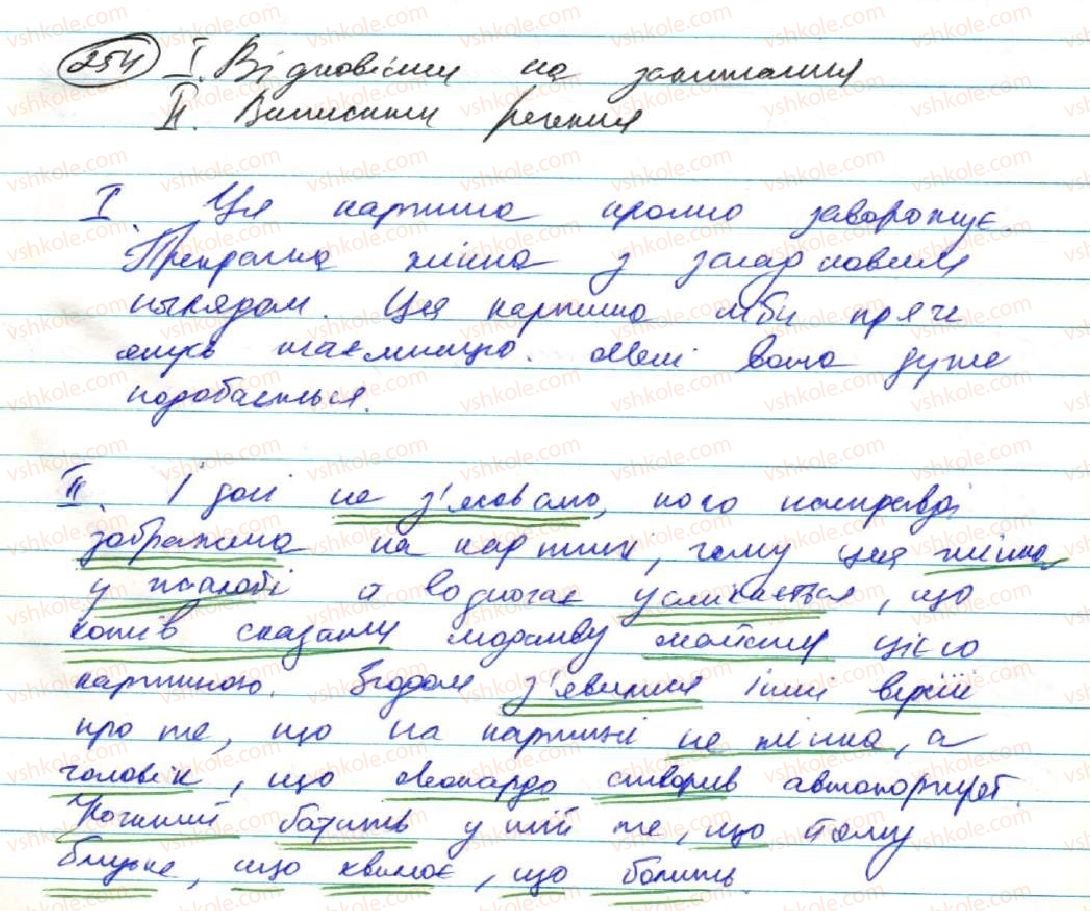 254 I. Відповісти на запитання
II. Виписати речення
I. Ця картина прямо заворожує.
Прекрасна жінка з загадковим
поглядом. Ця картина ніби пряче
якусь таємницю. Мені вона дуже
подобається.
II. І досі не з'ясовано, кого насправді
зображено на картині, чому ця жінка
у жалобі й водночас усміхається, що
хотів сказати людству майстер цією
картиною. Згодом з'явилися інші версії
про те, що на картині не жінка, а
чоловік, що Леонардо створив автопортрет.
Кожний бачить у ній те, що йому
близьке, що хвилює, що болить.